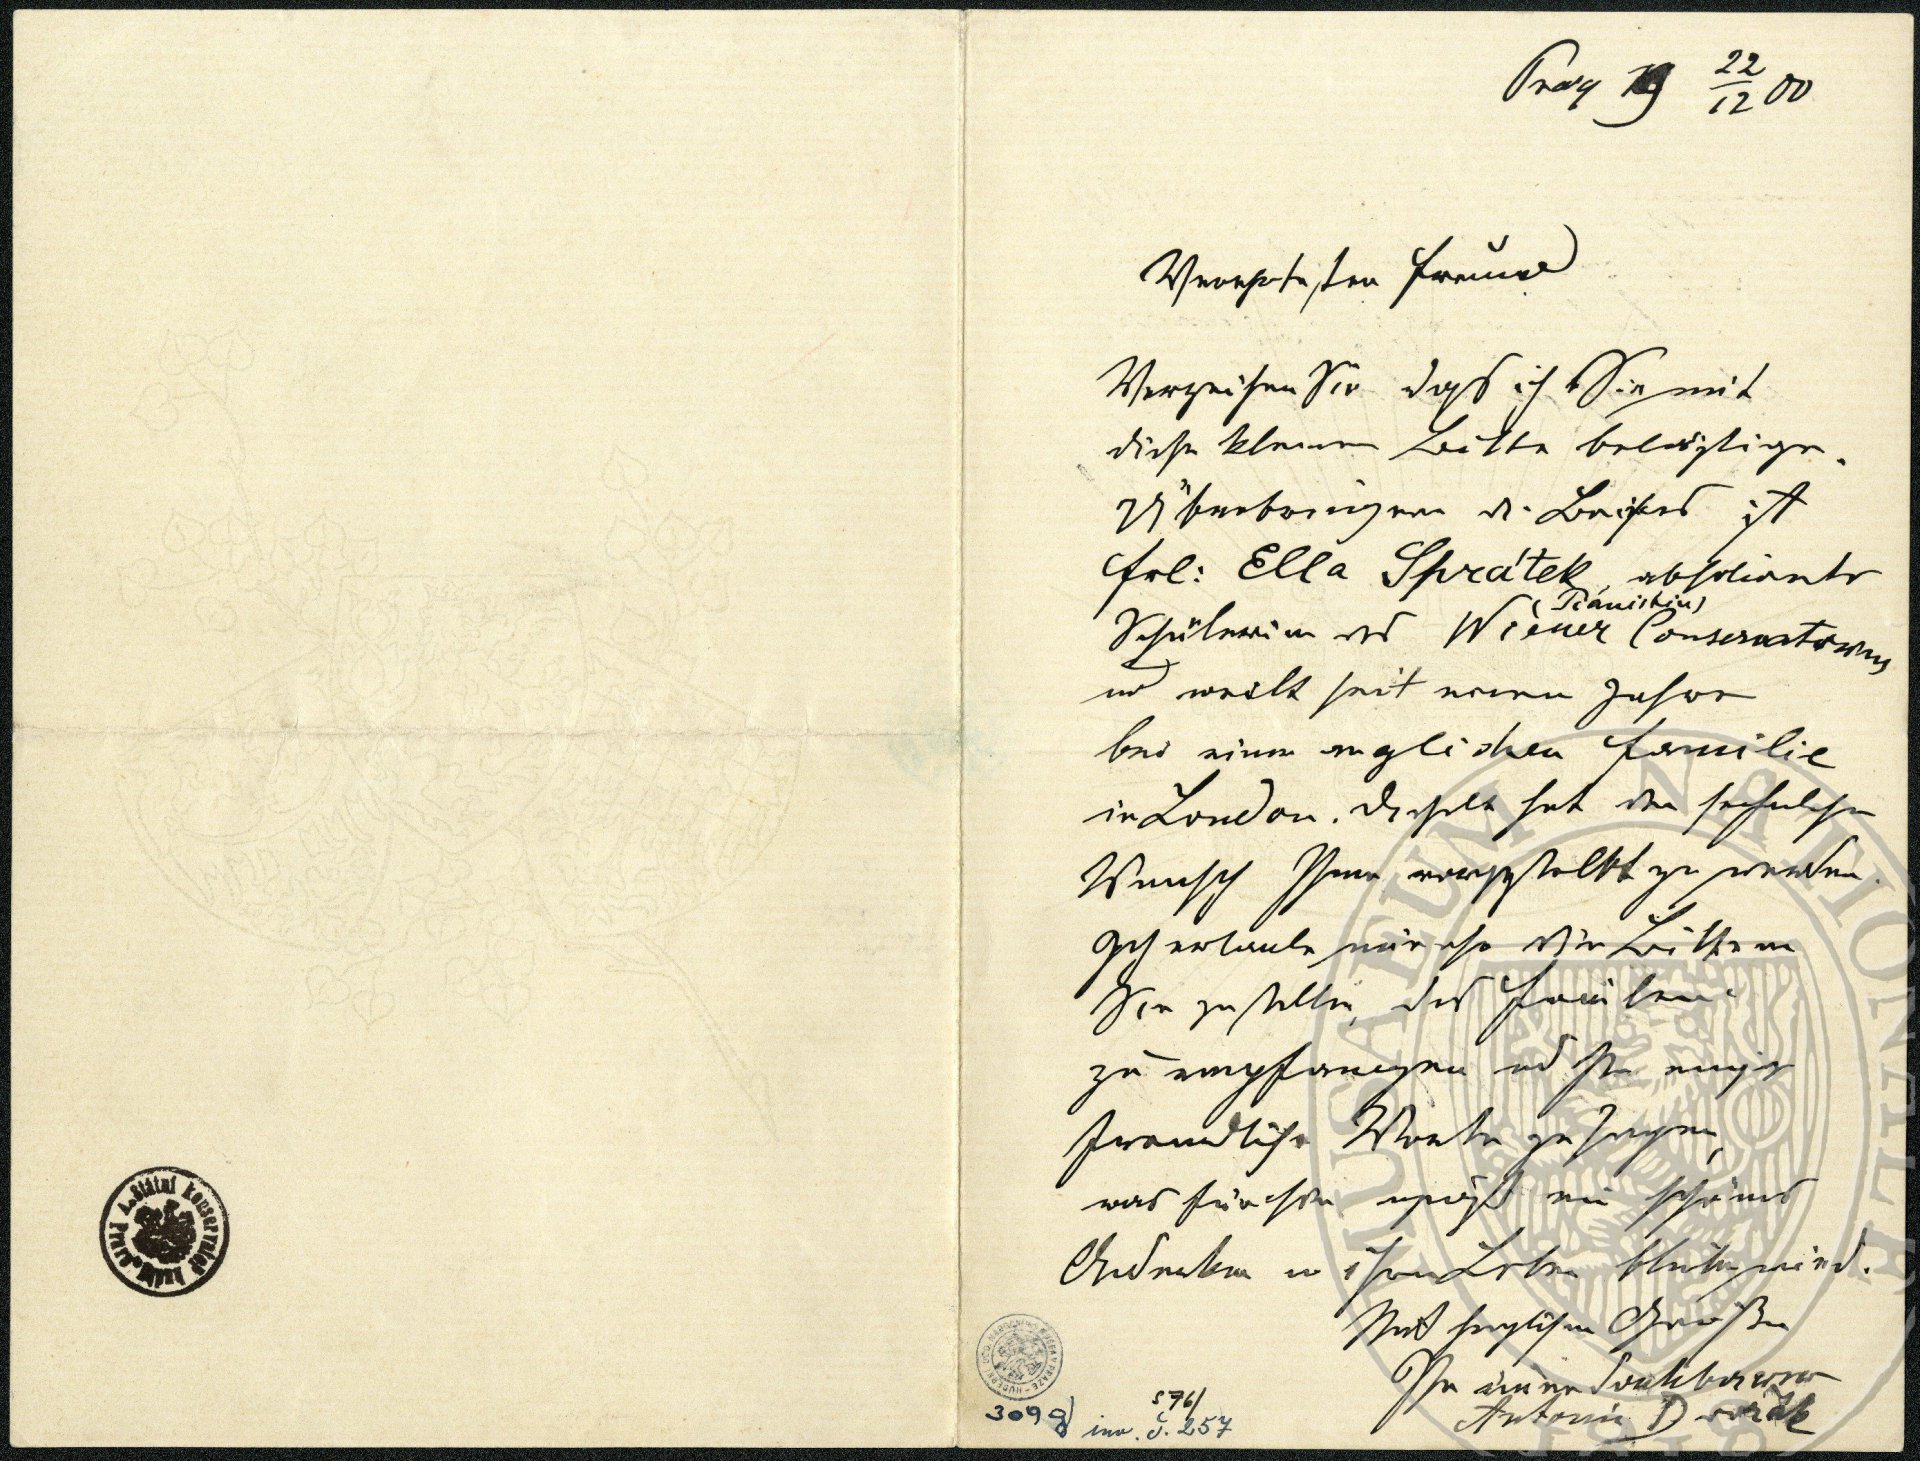 Prag 22/12 00
Verehrtester Freund
Verzeihen Sie daß ich Sie mit
diese kleinen Bitte belästige.
Überbringerin d. Briefes ist
Frl: Ella Sprátek, absolvierte
(Pianistin)
Schülerin des Wiener Conservatoriums
und weilt seit einem Jahre
bei einer englischen Familie
in London. Dieselbe hat den sehnlichen
Wunsch Ihnen vorgestellt zu werden.
Ich erlaube mir also die Bitte an
Sie zu stellen, das Fräulein
zu empfangen und ihr einige
freundliche Worte zu sagen,
was für sie gewiß ein schönes
Andenken in ihrem Leben bleiben wird.
Mit herzlichen Grüßen
Ihr immer dankbarer
Antonín Dvořák
576/
3099 inv. č. 257
Státní konservatoř hudby v Praze
MUSAEUM NATIONALE